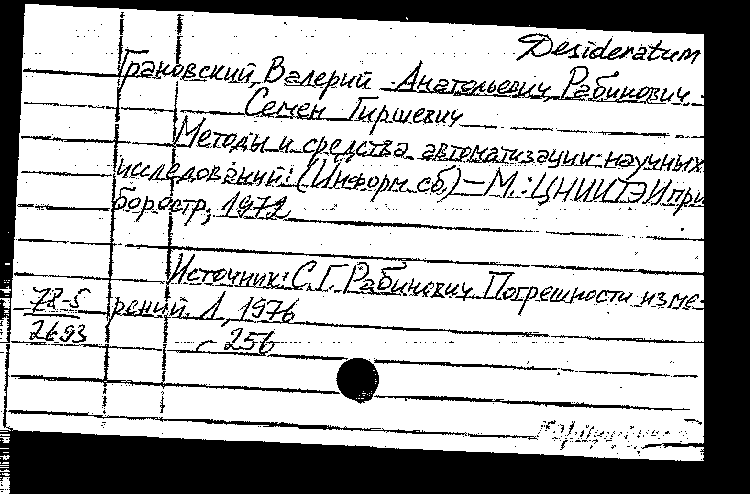 Desideratum
Грановский, Валерий Анатольевич, Рабинович
Семен Гиршевич
Методы и средства автоматизации научных
исследований: (Информ. сб.) — М.: ЦНИИТЭИпри
боростр, 1972
Источник: С. Г. Рабинович Погрешности изме-
78-5 рений. Л, 1976
2693 с 256